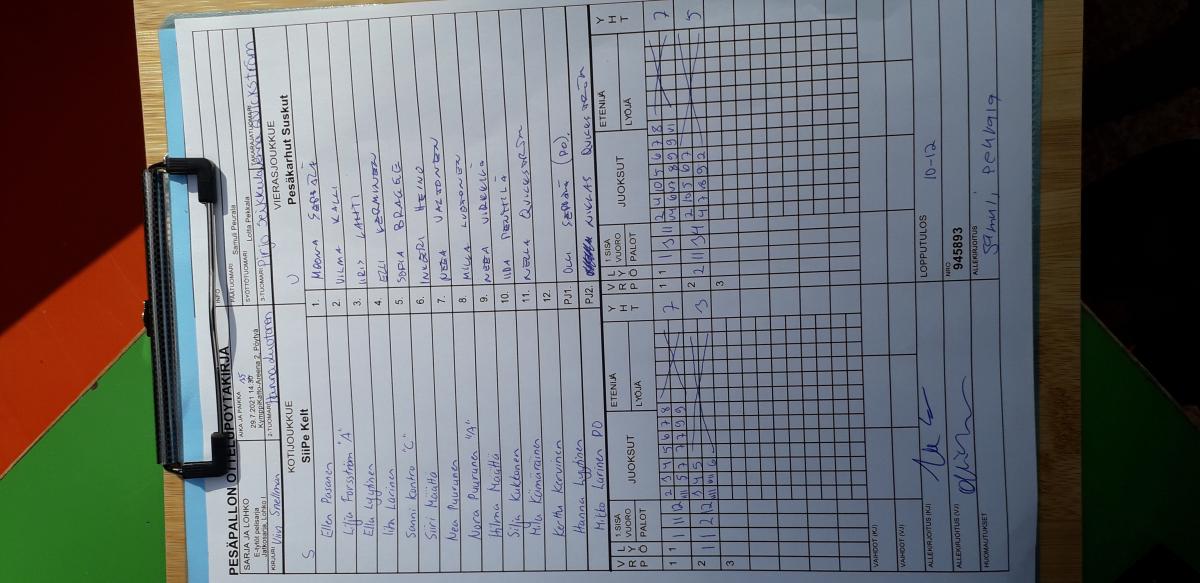 PESÄPALLON OTTELUPÖYTÄKIRJA
SARJA JA LOHKO
E-tytöt pelisarja
Jatkosarja, Lohko I
AIKA JA PAIKKA 15
29.7.2021 14.30
KymppiKatto-Areena 2, Pöytyä
INFO
PÄÄTUOMARI Samuli Peurala
SYÖTTÖTUOMARI Lotta Pekkala
KIRJURI Viivi Snellman
2-TUOMARI
3-TUOMARI Pirjo
TAKARAJATUOMARI
KOTIJOUKKUE
SiiPe Kelt
S
VIERASJOUKKUE
Pesäkarhut Suskut
U
Ellen Pasanen
1. MOONA SEPPÄLÄ
Lilja Forsström "A"
2. VILMA KALLI
Ella Lyytinen
3. IIRIS LAHTI
Iita Larinen
4. ELLI KERMINEN
Sanni Kontro "C"
5. SOFIA BRAGEE
Siiri Määttä
6. INKERI HEINO
Nea Puurunen
7. NEEA VALTONEN
Nora Puurunen "A"
8. MILLA LUOTONEN
Hilma Määttä
9. NEEA VIRKKILÄ
Silja Kukkonen
10. IIDA PENTTILÄ
Mila Kämäräinen
11. NELLA QUICKSTRÖM
Kerttu Kervinen
12.
Hanna Lyytinen
PJ1. OLLI SEPPÄLÄ (PO).
Mikko Larinen PO
PJ2. NIKLAS QUICKSTRÖM
V L
R Y
P Ö
1.SISÄ
VUORO
PALOT
JUOKSUT
ETENIJÄ
LYÖJÄ
Y
H
T
V L
R Y
P Ö
1.SISÄ
VUORO
PALOT
JUOKSUT
ETENIJÄ
LYÖJÄ
Y
H
T
1 1 11 12 2 3 4 5 6 7 8 7
1 1 3 11 2 4 10 5 6 7 8 7
2 1 2 12 3 4 5 3
2 11 3 4 2 10 5 6 7 5
4 7 8 9 2
3
3
VAIHDOT (KJ)
VAIHDOT (VJ)
LOPPUTULOS
10-12
ALLEKIRJOITUS (KJ)
ALLEKIRJOITUS (VJ)
NRO
945893
HUOMAUTUKSET
ALLEKIRJOITUS
Samuli Peurala